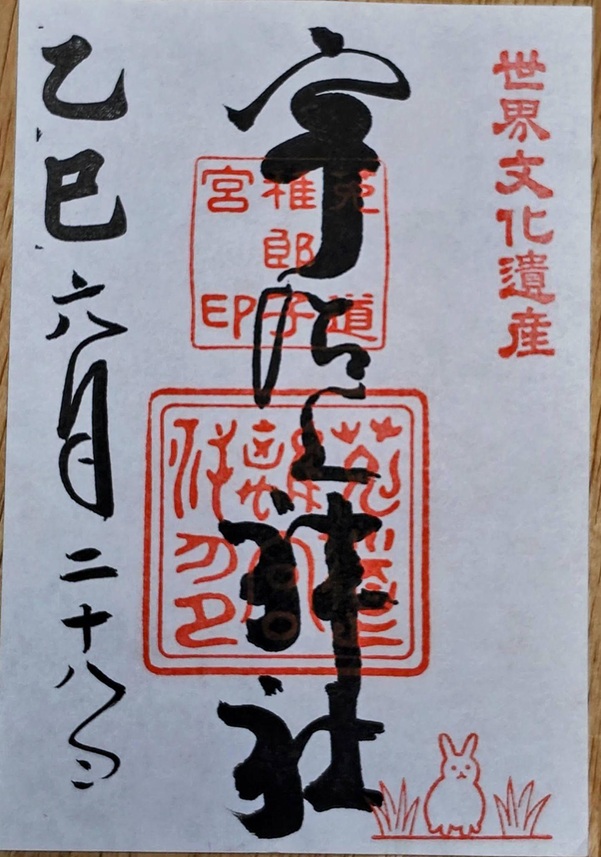 世界文化遺産
宇治上神社
菟道
稚郎子
宮印
乙巳六月二十八日